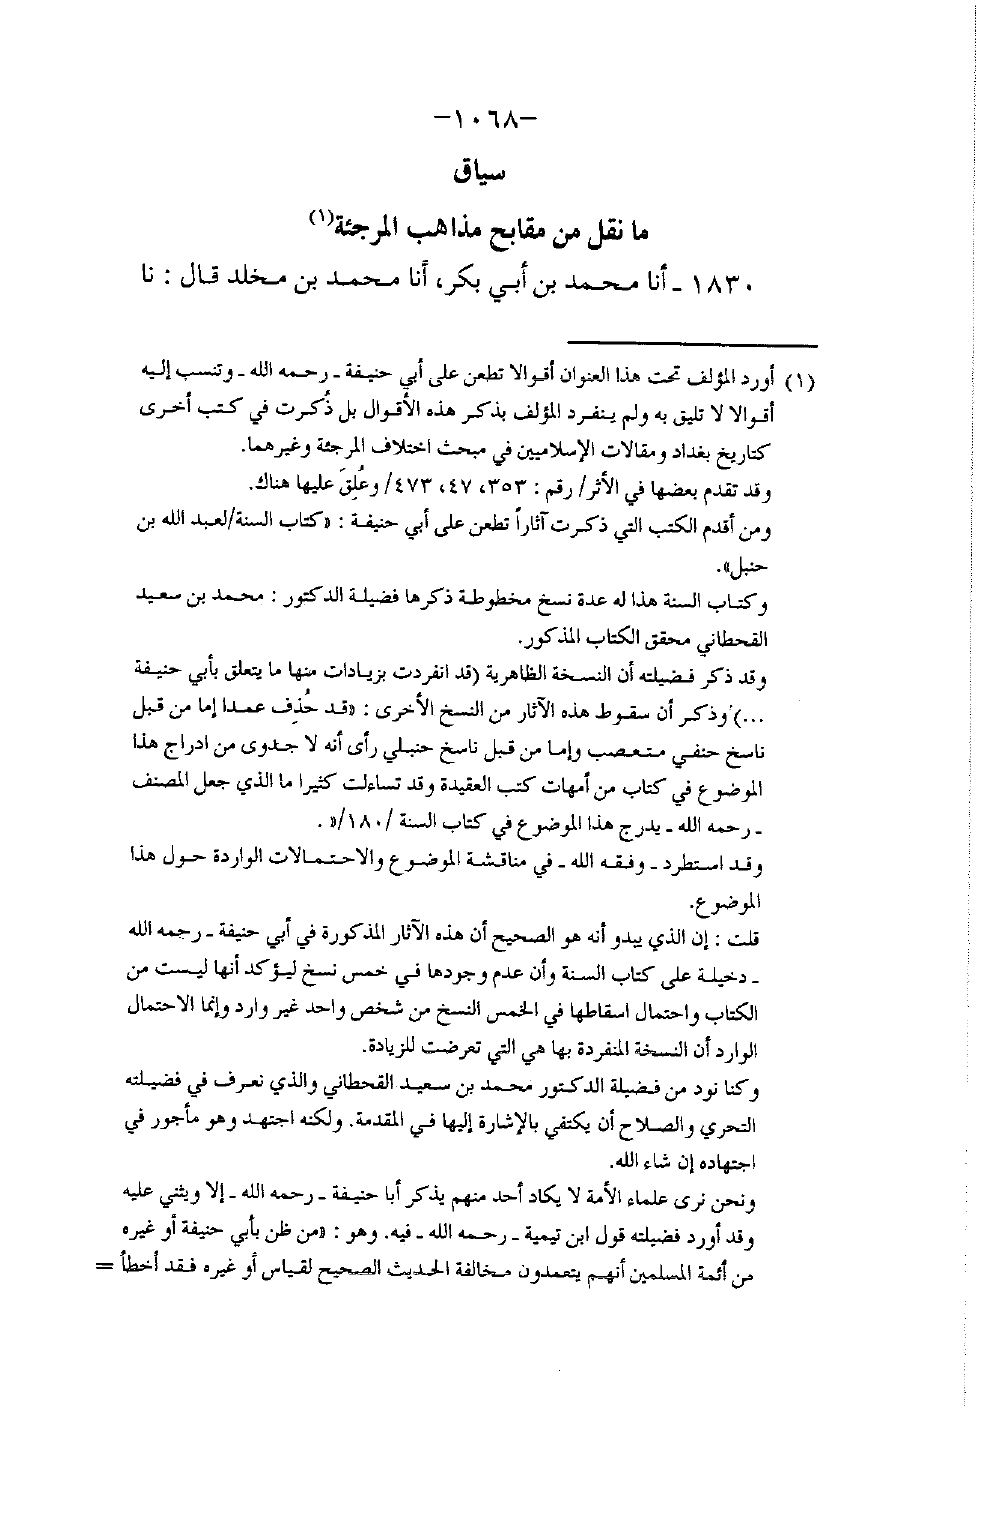 -١٠٦٨-
سياق
ما نقل من مقابح مذاهب المرجئة(١)
١٨٣٠ ـ أنا محمد بن أبي بكر، أنا محمد بن مخلد قال : نا
(١) أورد المؤلف تحت هذا العنوان أقوالا تطعن على أبي حنيفة ـ رحمه الله ـ وتنسب إليه
أقوالا لا تليق به ولم ينفرد المؤلف بذكر هذه الأقوال بل ذُكرت في كتب أخرى
كتاريخ بغداد ومقالات الإسلاميين في مبحث اختلاف المرجئة وغيرهما.
وقد تقدم بعضها في الأثر/ رقم : ٣٥٣، ٤٧، ٤٧٣/ وعُلِقَ عليها هناك.
ومن أقدم الكتب التي ذكرت آثاراً تطعن على أبي حنيفة : «كتاب السنة/لعبد الله بن
حنبل».
وكتاب السنة هذا له عدة نسخ مخطوطة ذكرها فضيلة الدكتور : محمد بن سعيد
القحطاني محقق الكتاب المذكور.
وقد ذكر فضيلته أن النسخة الظاهرية (قد انفردت بزيادات منها ما يتعلق بأبي حنيفة
...) وذكر أن سقوط هذه الآثار من النسخ الأخرى : «قد حُذِف عمدا إما من قبل
ناسخ حنفي متعصب وإما من قبل ناسخ حنبلي رأى أنه لا جدوى من ادراج هذا
الموضوع في كتاب من أمهات كتب العقيدة وقد تساءلت كثيرا ما الذي جعل المصنف
ـ رحمه الله ـ يدرج هذا الموضوع في كتاب السنة /١٨٠/» .
وقد استطرد ـ وفقه الله ـ في مناقشة الموضوع والاحتمالات الواردة حول هذا
الموضوع.
قلت : إن الذي يبدو أنه هو الصحيح أن هذه الآثار المذكورة في أبي حنيفة ـ رحمه الله
ـ دخيلة على كتاب السنة وأن عدم وجودها في خمس نسخ ليؤكد أنها ليست من
الكتاب واحتمال اسقاطها في الخمس النسخ من شخص واحد غير وارد وإنما الاحتمال
الوارد أن النسخة المنفردة بها هي التي تعرضت للزيادة.
وكنا نود من فضيلة الدكتور محمد بن سعيد القحطاني والذي نعرف في فضيلته
التحري والصلاح أن يكتفي بالإشارة إليها في المقدمة. ولكنه اجتهد وهو مأجور في
اجتهاده إن شاء الله.
ونحن نرى علماء الأمة لا يكاد أحد منهم يذكر أبا حنيفة ـ رحمه الله ـ إلا ويثني عليه
وقد أورد فضيلته قول ابن تيمية ـ رحمه الله ـ فيه. وهو : «من ظن بأبي حنيفة أو غيره
من أئمة المسلمين أنهم يتعمدون مخالفة الحديث الصحيح لقياس أو غيره فقد أخطأ =